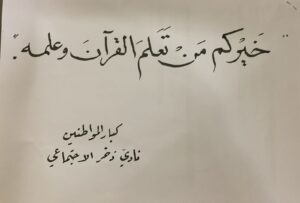 "خَيْركم مَنْ تَعَلمَ القرآنَ وعلمه".
كبار المواطنين
نادي ذخر الاجتماعي